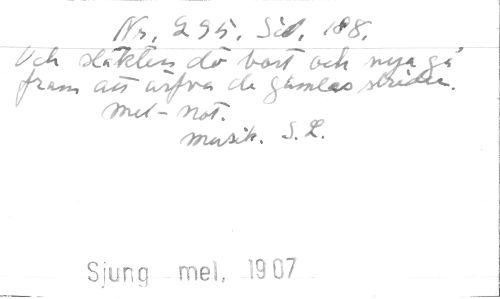 Nr. 295. Sid. 188.
Och släkten dö bort och nya gå
fram att ärfva de gamles strider.
Mel-not.
Musik. S. L.
Sjung mel, 1907